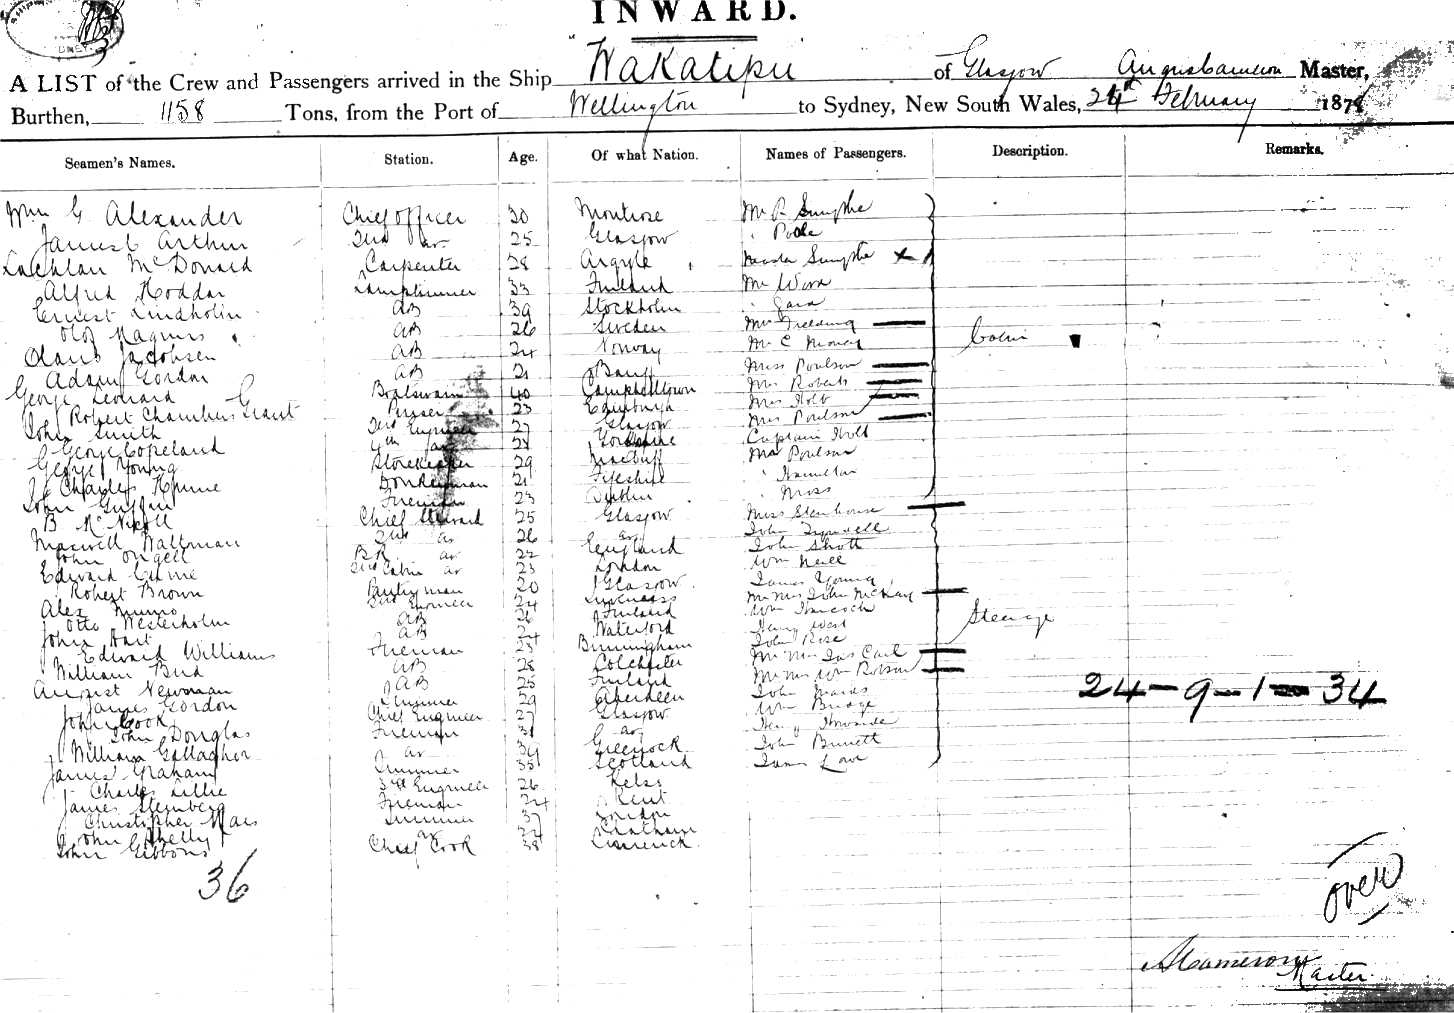 INWARD.
A LIST of the Crew and Passengers arrived in the Ship Wakatipu of Glasgow Angus Cameron Master,
Burthen, 1158 Tons, from the Port of Wellington to Sydney, New South Wales, 24th February 187
Seamen's Names. Station. Age. Of what Nation. Names of Passengers. Description. Remarks.
Wm G Alexander Chief officer 30 Montrose Mr R Smythe
James Arthur 2nd do 25 Glasgow " Poole
Lachlan McDonald Carpenter 28 Argyle Smythe x
Alfred Hoddar Lamptrimmer 33 Finland Mr
Ernest Lindholm AB 39 Stockholm
Olof Magnus AB 26 Sweden Fielding
Olaus Jacobsen AB 24 Norway Mr C Cabin
Adam Gordon AB 21 Banff Miss Poulson
George Leonard Boatswain 40 Campbelltown Mrs Roberts
Robert Chambers Grant Purser 23 Edinburgh Mrs Holt
John Smith 2nd Engineer 27 Glasgow Mrs Poulson
George Copeland 4th do Yorkshire Captain Holt
George Young Storekeeper 29 Macduff Poulson
Charles Hume Donkeyman 21 Fifeshire " Hamilton
John Griffin Fireman 23 Dublin " Moss
B McNicoll Chief Steward 25 Glasgow Miss Stenhouse
Maxwell Walkman 2nd do 26 do John
John Angell BR do 22 England John Shott
Edward Currie 2nd Cabin do 23 London Wm Neill
Robert Brown Pantryman 20 Glasgow James Young
Alex Munro 2nd Engineer 24 Inverness Mr Mrs John McKay
Otto Westerholm AB 26 Finland Wm Hancock Steerage
John Hart AB 24 Waterford Henry West
Edward Williams Fireman 23 Birmingham John Rose
William Bird AB 28 Colchester Mr Mrs Jas Carl
August Newman AB 25 Finland Mr Mrs Wm Robson
James Gordon Trimmer 29 Aberdeen John 24-9-1-34
John Cook Chief Engineer 27 Glasgow Wm Bridge
John Douglas Fireman 31 do Henry
William Gallagher do 34 Greenock John Burnett
James Graham Trimmer 35 Scotland James Love
Charles Lillie 3rd Engineer 26 Kelso
James Sternberg Fireman 24 Kent
Christopher Mais Trimmer 37 London
John Shelly do 34 Chatham
John Gibbons Chief Cook 38 Limerick
36
over
A Cameron
Master